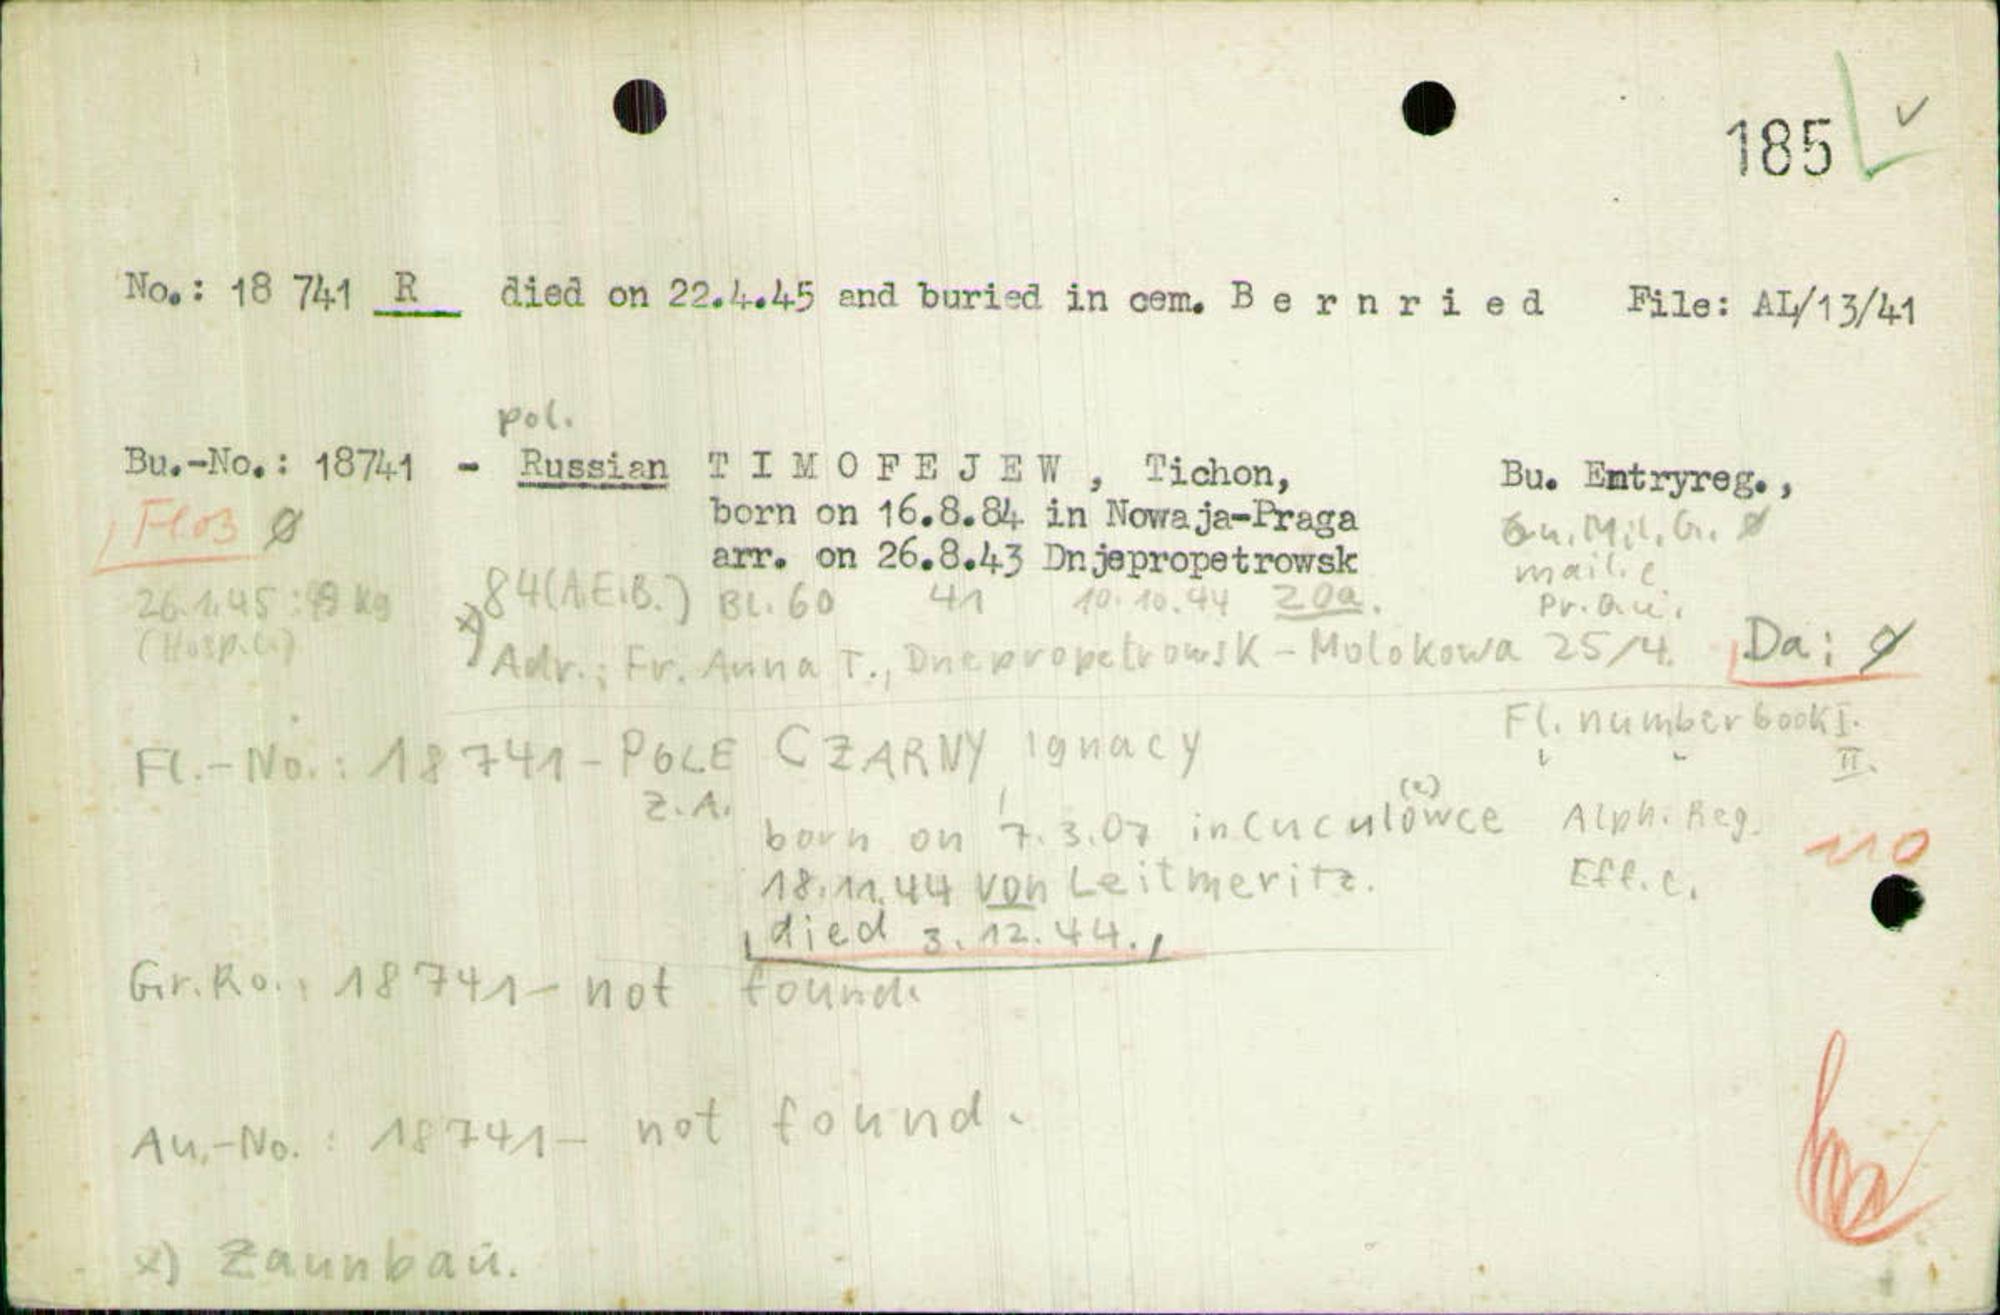 185
No.: 18 741 R died on 22.4.45 and buried in cem. B e r n r i e d File: AL/13/41
pol.
Bu.-No.: 18741 - Russian T I M O F E J E W , Tichon, Bu. Entryreg.,
Flos Ø born on 16.8.84 in Nowaja-Praga Bu. Mil. G. Ø
arr. on 26.8.43 Dnjepropetrowsk mail.c
26.1.45: kg x) 84 (A.E.B.) Bl. 60 41 10.10.44 20a. Pr.
(Hosp.c.) Adr.: Fr. Anna T., Dnepropetrowsk - Molokowa 25/4. Da: Ø
Fl. number book I.
Fl.-No.: 18 741 - POLE CZARNY Ignacy " " II.
Z.A. (e)
born on 7.3.07 in Cuculowce Alph. Reg. no
18.11.44 von Leitmeritz. Eff.c.
died 3.12.44.
Gr.Ro.: 18741 - not found.
Au.-No.: 18741 - not found.
x) Zaunbau.